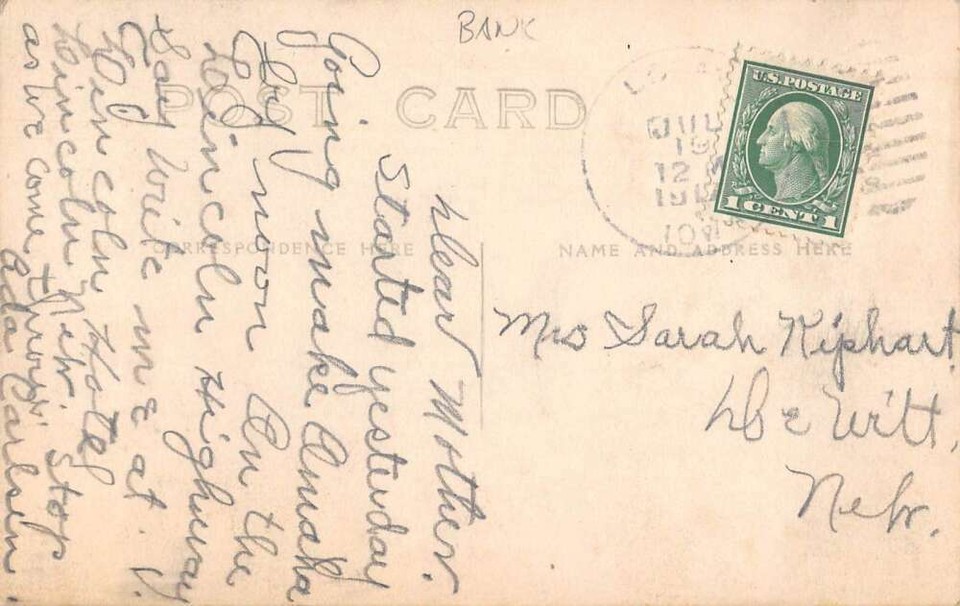 BANK
POST CARD
U.S. POSTAGE
1 CENT 1
JUL
12
CORRESPONDENCE HERE
NAME AND ADDRESS HERE
Dear Mother.
Started yesterday
Going make Omaha
by noon On the
Lincoln Highway
Say write me at
Lincoln Hotel
Lincoln Nebr. Stop
as we come through
Ada Carlsen.
Mrs Sarah Kiphart
De Witt,
Nebr.